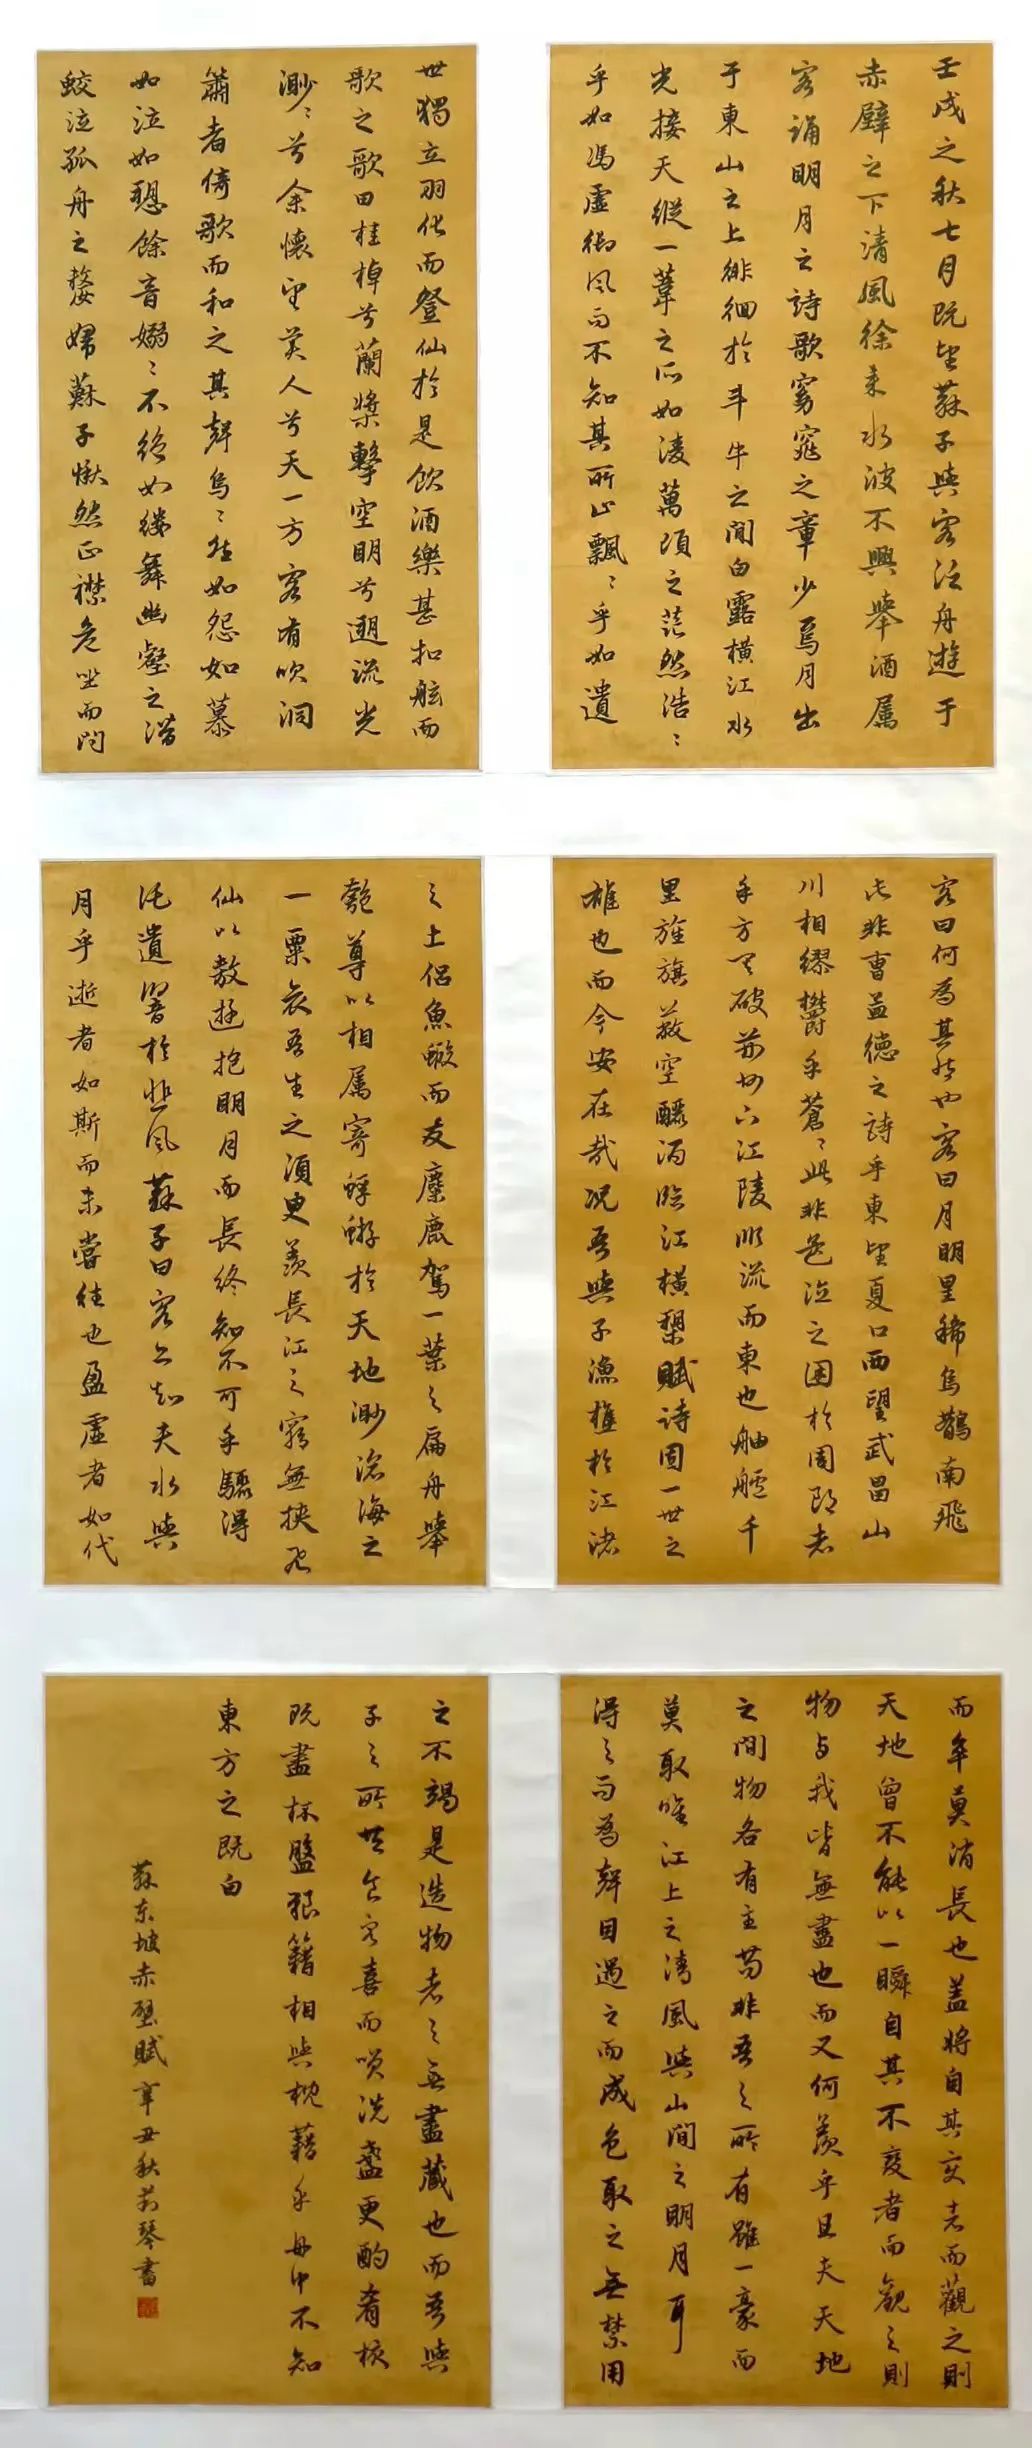 壬戌之秋七月既望蘇子與客泛舟遊于
赤壁之下清風徐来水波不興舉酒属
客誦明月之詩歌窈窕之章少焉月出
于東山之上徘徊於斗牛之間白露橫江水
光接天縱一葦之所如淩萬頃之茫然浩〻
乎如馮虛御風而不知其所止飄〻乎如遺
世獨立羽化而登仙於是飲酒樂甚扣舷而
歌之歌曰桂棹兮蘭槳擊空明兮遡流光
渺〻兮余懷望美人兮天一方客有吹洞
簫者倚歌而和之其聲烏〻然如怨如慕
如泣如愬餘音嫋〻不絕如縷舞幽壑之潛
蛟泣孤舟之嫠婦蘇子愀然正襟危坐而問
客曰何為其然也客曰月明星稀烏鵲南飛
此非曹孟德之詩乎東望夏口西望武昌山
川相繆鬱乎蒼〻此非孟德之困於周郎者
乎方其破荊州下江陵順流而東也舳艫千
里旌旗蔽空釃酒臨江橫槊賦詩固一世之
雄也而今安在哉況吾與子漁樵於江渚
之上侶魚蝦而友麋鹿駕一葉之扁舟舉
匏尊以相属寄蜉蝣於天地渺滄海之
一粟哀吾生之須臾羨長江之窮無挾飛
仙以遨遊抱明月而長終知不可乎驟得
託遺響於悲風蘇子曰客亦知夫水與
月乎逝者如斯而未嘗往也盈虛者如代
而卒莫消長也蓋將自其變者而觀之則
天地曾不能以一瞬自其不變者而觀之則
物与我皆無盡也而又何羨乎且夫天地
之間物各有主苟非吾之所有雖一豪而
莫取唯江上之清風與山間之明月耳
得之而為聲目遇之而成色取之無禁用
之不竭是造物者之無盡藏也而吾與
子之所共食客喜而笑洗盞更酌肴核
既盡杯盤狼籍相與枕藉乎舟中不知
東方之既白
蘇东坡赤壁賦辛丑秋琴書